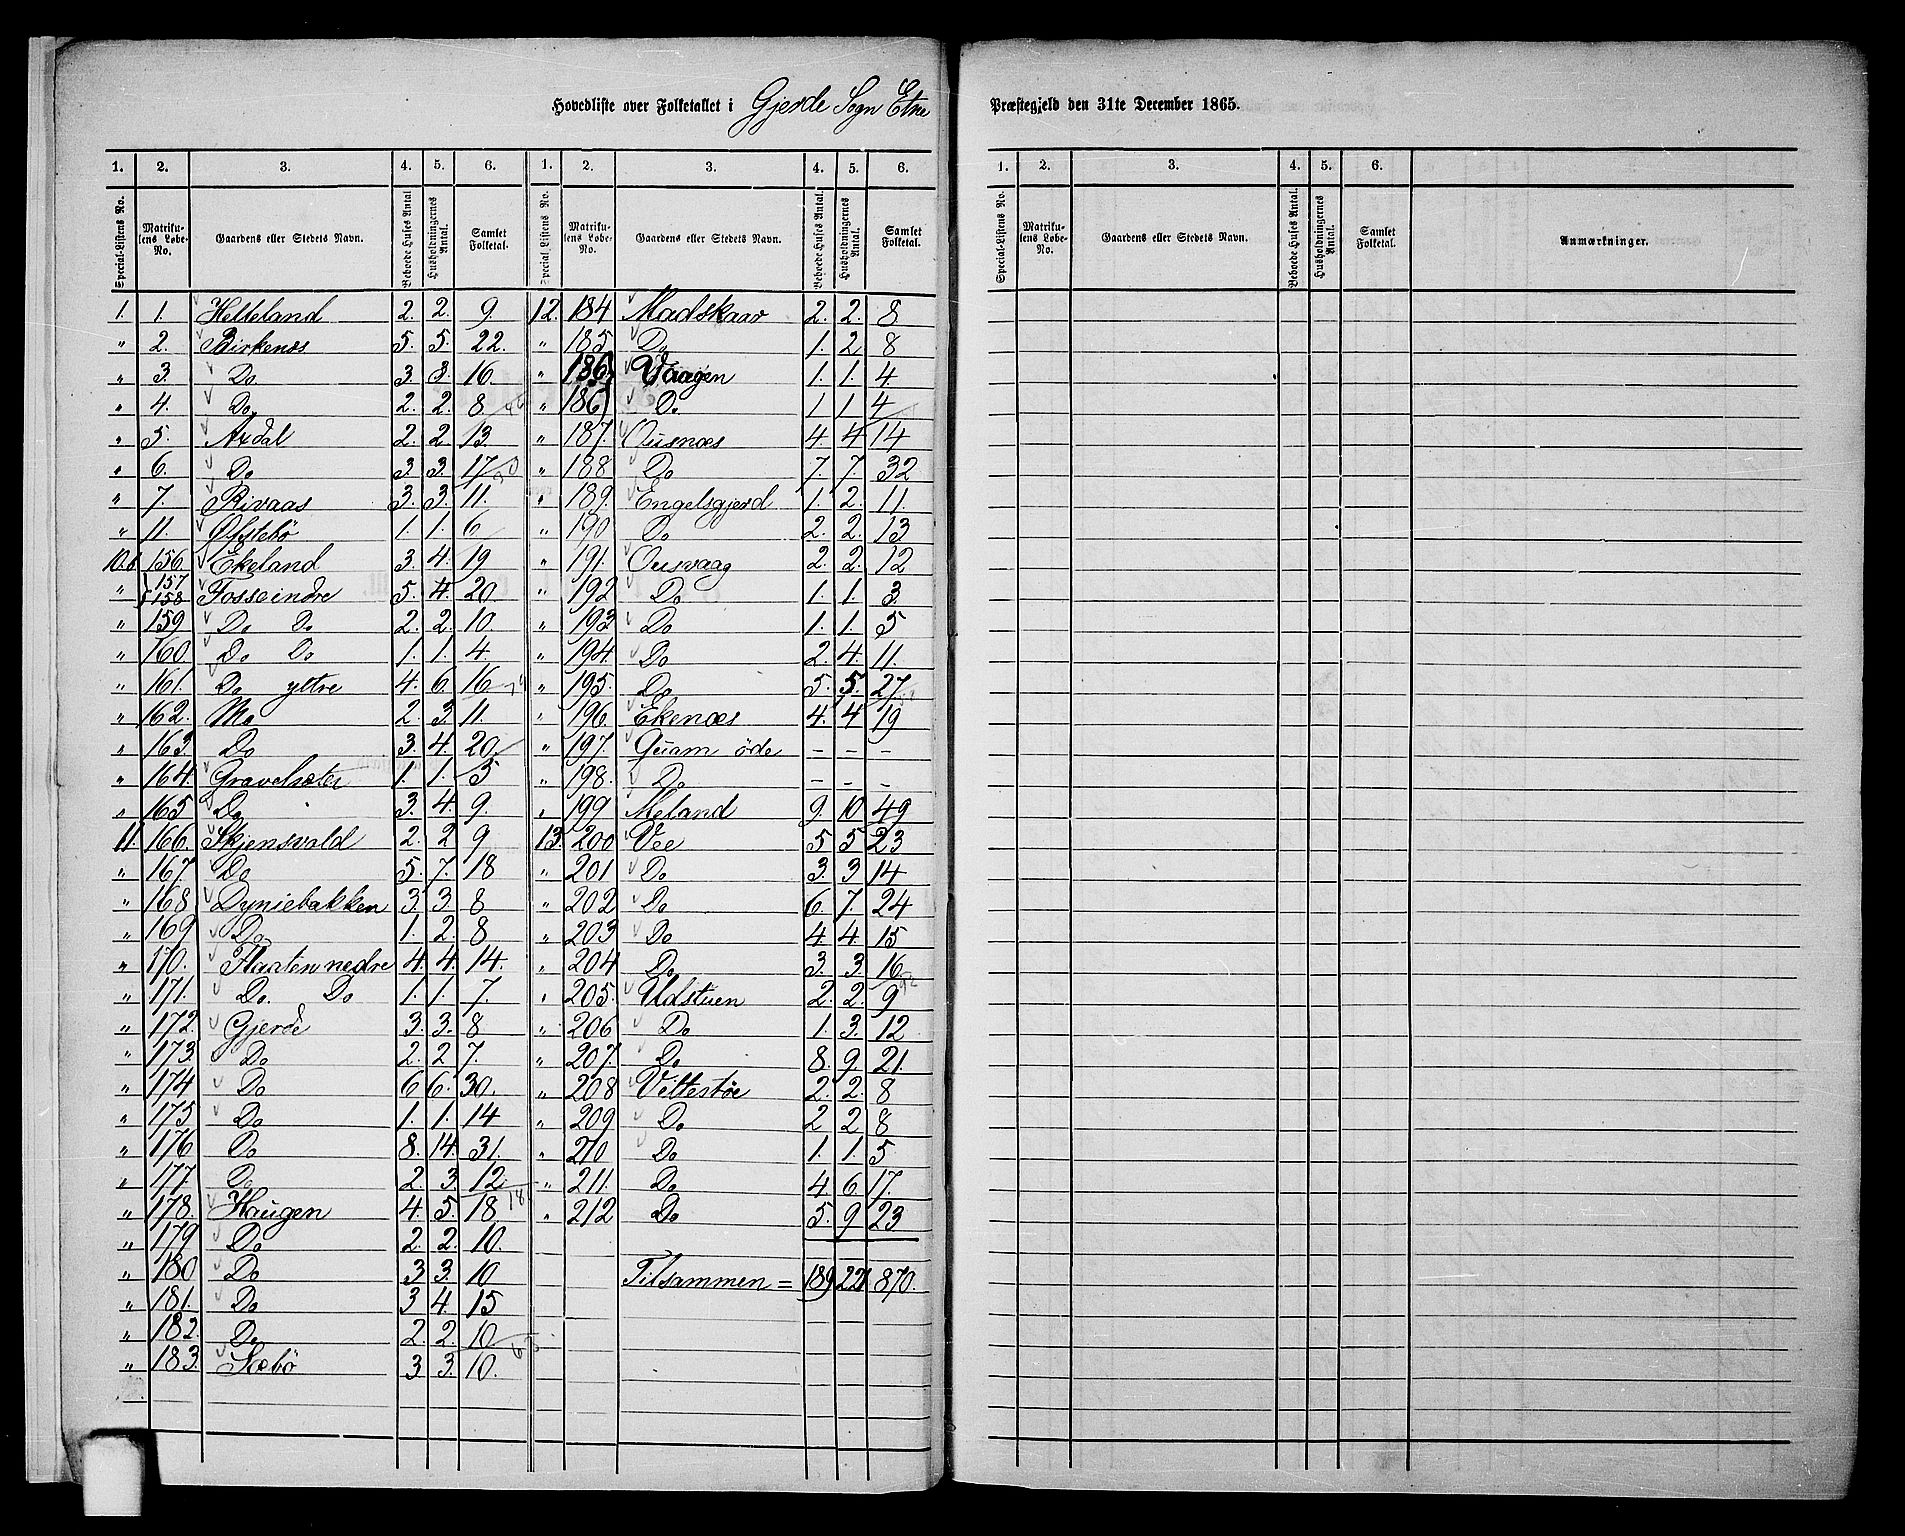 Hovedliste over Folketallet i Gjerde Sogn Etne Præstegjeld den 31te December 1865.
1. 2. 3. 4. 5. 6. 1. 2. 3. 4. 5. 6. 1. 2. 3. 4. 5. 6.
Special-Listens No. Matrikulens Løbe-No. Gaardens eller Stedets Navn. Beboede Huses Antal Husholdningernes Antal. Samlet Folketal. Special-Listens No. Matrikulens Løbe-No. Gaardens eller Stedets Navn. Beboede Huses Antal. Husholdningernes Antal. Samlet Folketal. Special-Listens No. Matrikulens Løbe-No. Gaardens eller Stedets Navn. Beboede Huses Antal. Husholdningernes Antal. Samlet Folketal. Anmærkninger.
1. 1. Helteland 2. 2. 9. 12. 184 Madskaar 2. 2. 8
" 2. Birkenæs 5. 5. 22. " 185 Do 1. 2 8
" 3. Do 3. 3. 16. " 186 Vaagen 1. 1. 4
" 4. Do 2. 2. 8 " 186 Do 1 1 4
" 5. Axdal 2. 2 13. " 187. Ousnæs 4 4 14
" 6. Do 3. 3. 17 " 188 Do 7. 7. 32
" 7. Rivaas 3. 3. 11. " 189. Engelsgjerd 1. 2. 11.
" 11. Øfstebö 1. 1. 6 " 190 Do 2. 2. 13
10. 156. Ekeland 3. 4. 19 " 191. Ousvaag 2. 2. 12
" 157 158 Fosse indre 5. 4. 20. " 192 Do 1. 1. 3.
" 159 Do Do 2. 2. 10. " 193 Do 1. 1. 5
" 160 Do Do 1. 1. 4. " 194 Do 2. 4. 11.
" 161. Do yttre 4. 6. 16 " 195. Do 5. 5. 27
" 162. Mo 2. 3. 11. " 196. Ekenæs 4. 4 19
" 163. Do 3. 4. 20. " 197. Quam öde – – –
" 164. Gravelsæter 1. 1. 5 " 198. Do – – –
" 165 Do 3. 4. 9. " 199 Meland 9. 10. 49
11. 166. Skjensvald 2. 2 9 13. 200 Vee 5 5 23
" 167. Do 5. 7. 18 " 201 Do 3. 3 14
" 168 Dyniebakken 3. 3. 8 " 202 Do 6. 7. 24
" 169 Do 1. 2. 8 " 203 Do 4. 4. 15
" 170. Flaaten nedre 4. 4. 14. " 204 Do 3. 3. 16
" 171. Do. Do 1. 1. 7. " 205. Udstuen 2. 2. 9
" 172. Gjerde 3. 3. 8 " 206 Do 1. 3. 12
" 173. Do 2. 2 7. " 207. Do 8. 9. 21.
" 174 Do 6 6. 30. " 208 Vettestøe 2. 2. 8
" 175 Do 1. 1. 14 " 209 Do 2 2 8
" 176 Do 8. 14. 31. " 210 Do 1. 1. 5
" 177. Do 2. 3. 12 " 211. Do 4 6. 17.
" 178. Haugen 4. 5. 18 " 212 Do 5. 9 23
" 179 Do 2. 2. 10.
" 180 Do 3 3. 10 Tilsammen = 189 221 870.
" 181. Do 3 4. 15
" 182. Do 2. 2. 10
" 183. Sæbö 3 3. 10.